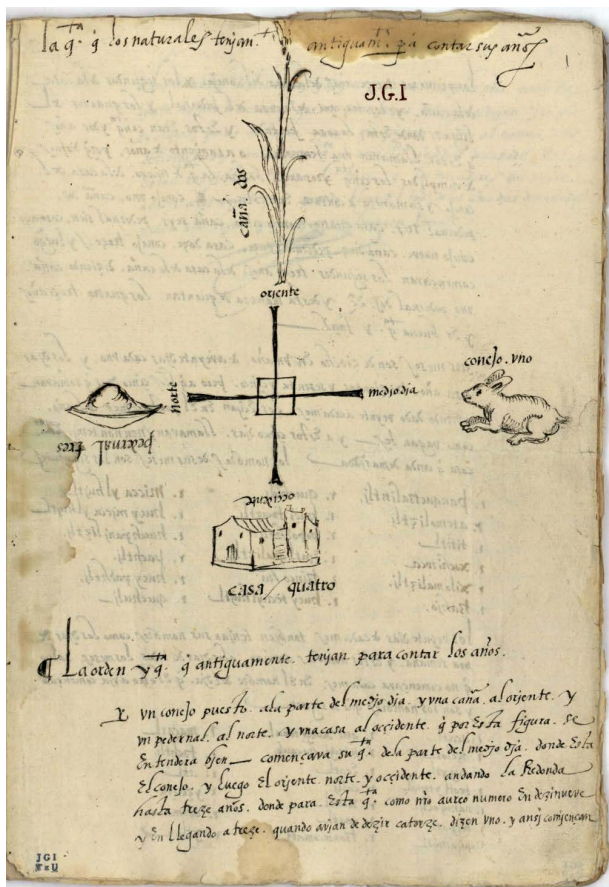 la q.ta q̃ los naturales tenjan antiguam.te pa contar sus años
J.G.I
caña. dos
oriente
conejo. vno
norte
medio dia
pedernal tres
occidente
casa / quatro
¶ La orden y q.ta q̃ antiguamente. tenjan para contar los años.
vn conejo puesto. ala parte del medjo dja. y vna caña. al oriente. y
vn pedernal. al norte. y vna casa al occidente. q̃ por Esta figura. se
Entendera bien — començava su q.ta dela parte del medjo dja. donde Esta
El conejo. y luego El oriente norte. y occidente. andando la Redonda
hasta treze años. donde para. Esta q.ta como nr̃o aureo numero En dezinueve
y En llegando a treze. quando avjan de dezir catorze. dizen vno. y ansj comjençan
JGI